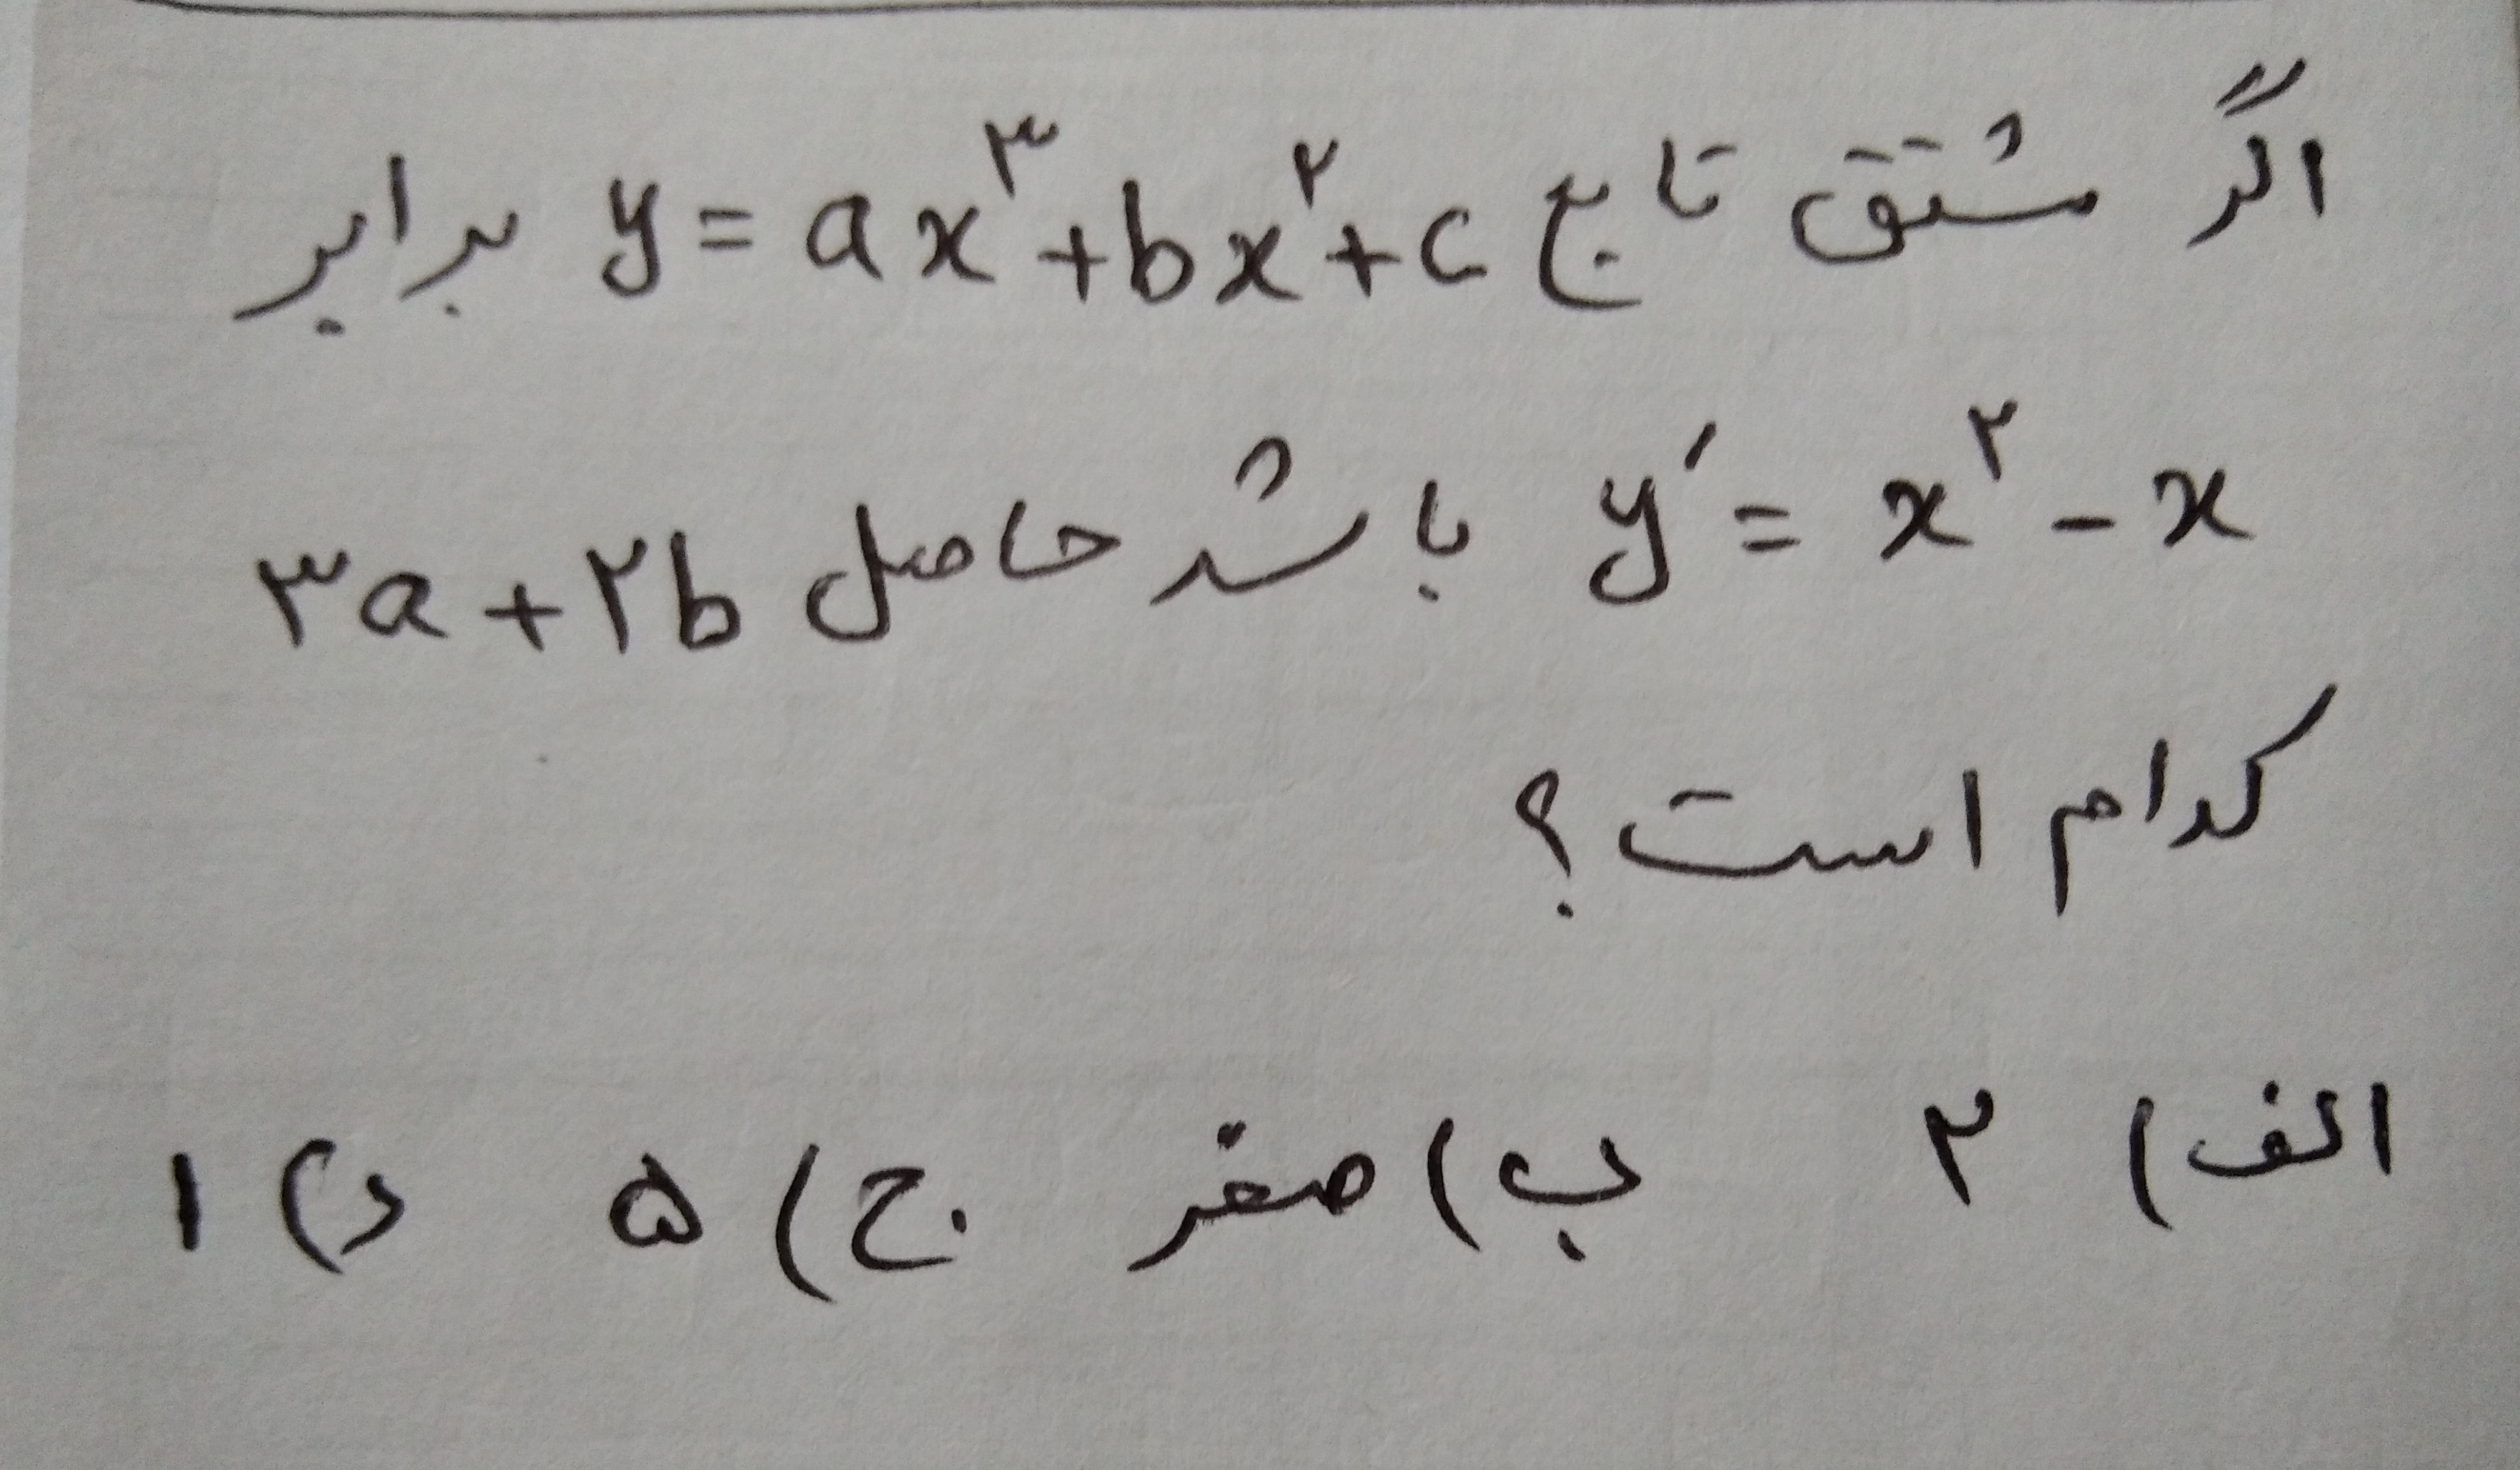 اگر مشتق تابع y = ax³ + bx² + c برابر
y′ = x² - x باشد حاصل ۳a + ۲b
کدام است؟
الف) ۲ ب) صفر ج) ۵ د) ۱